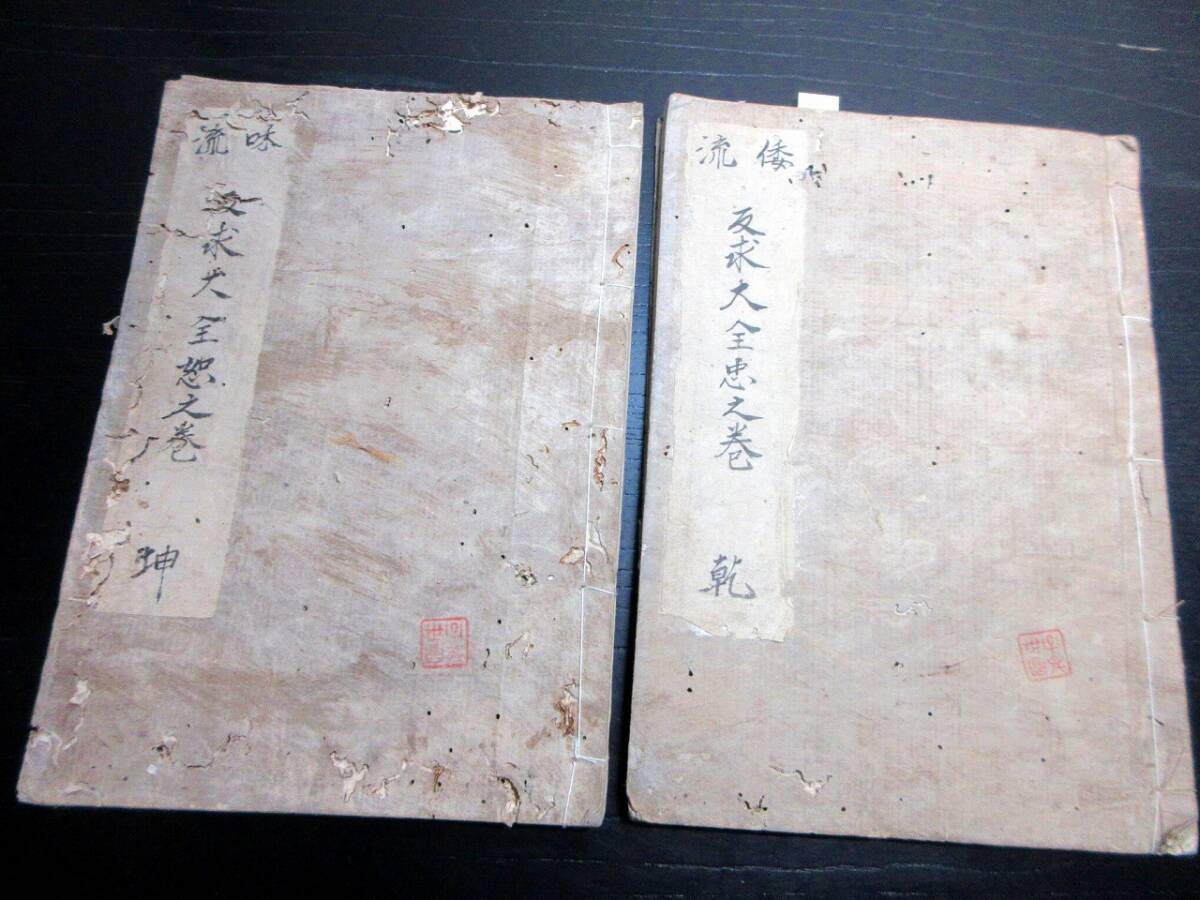 倭流
反求大全忠之巻
乾
味流
反求大全恕之巻
坤